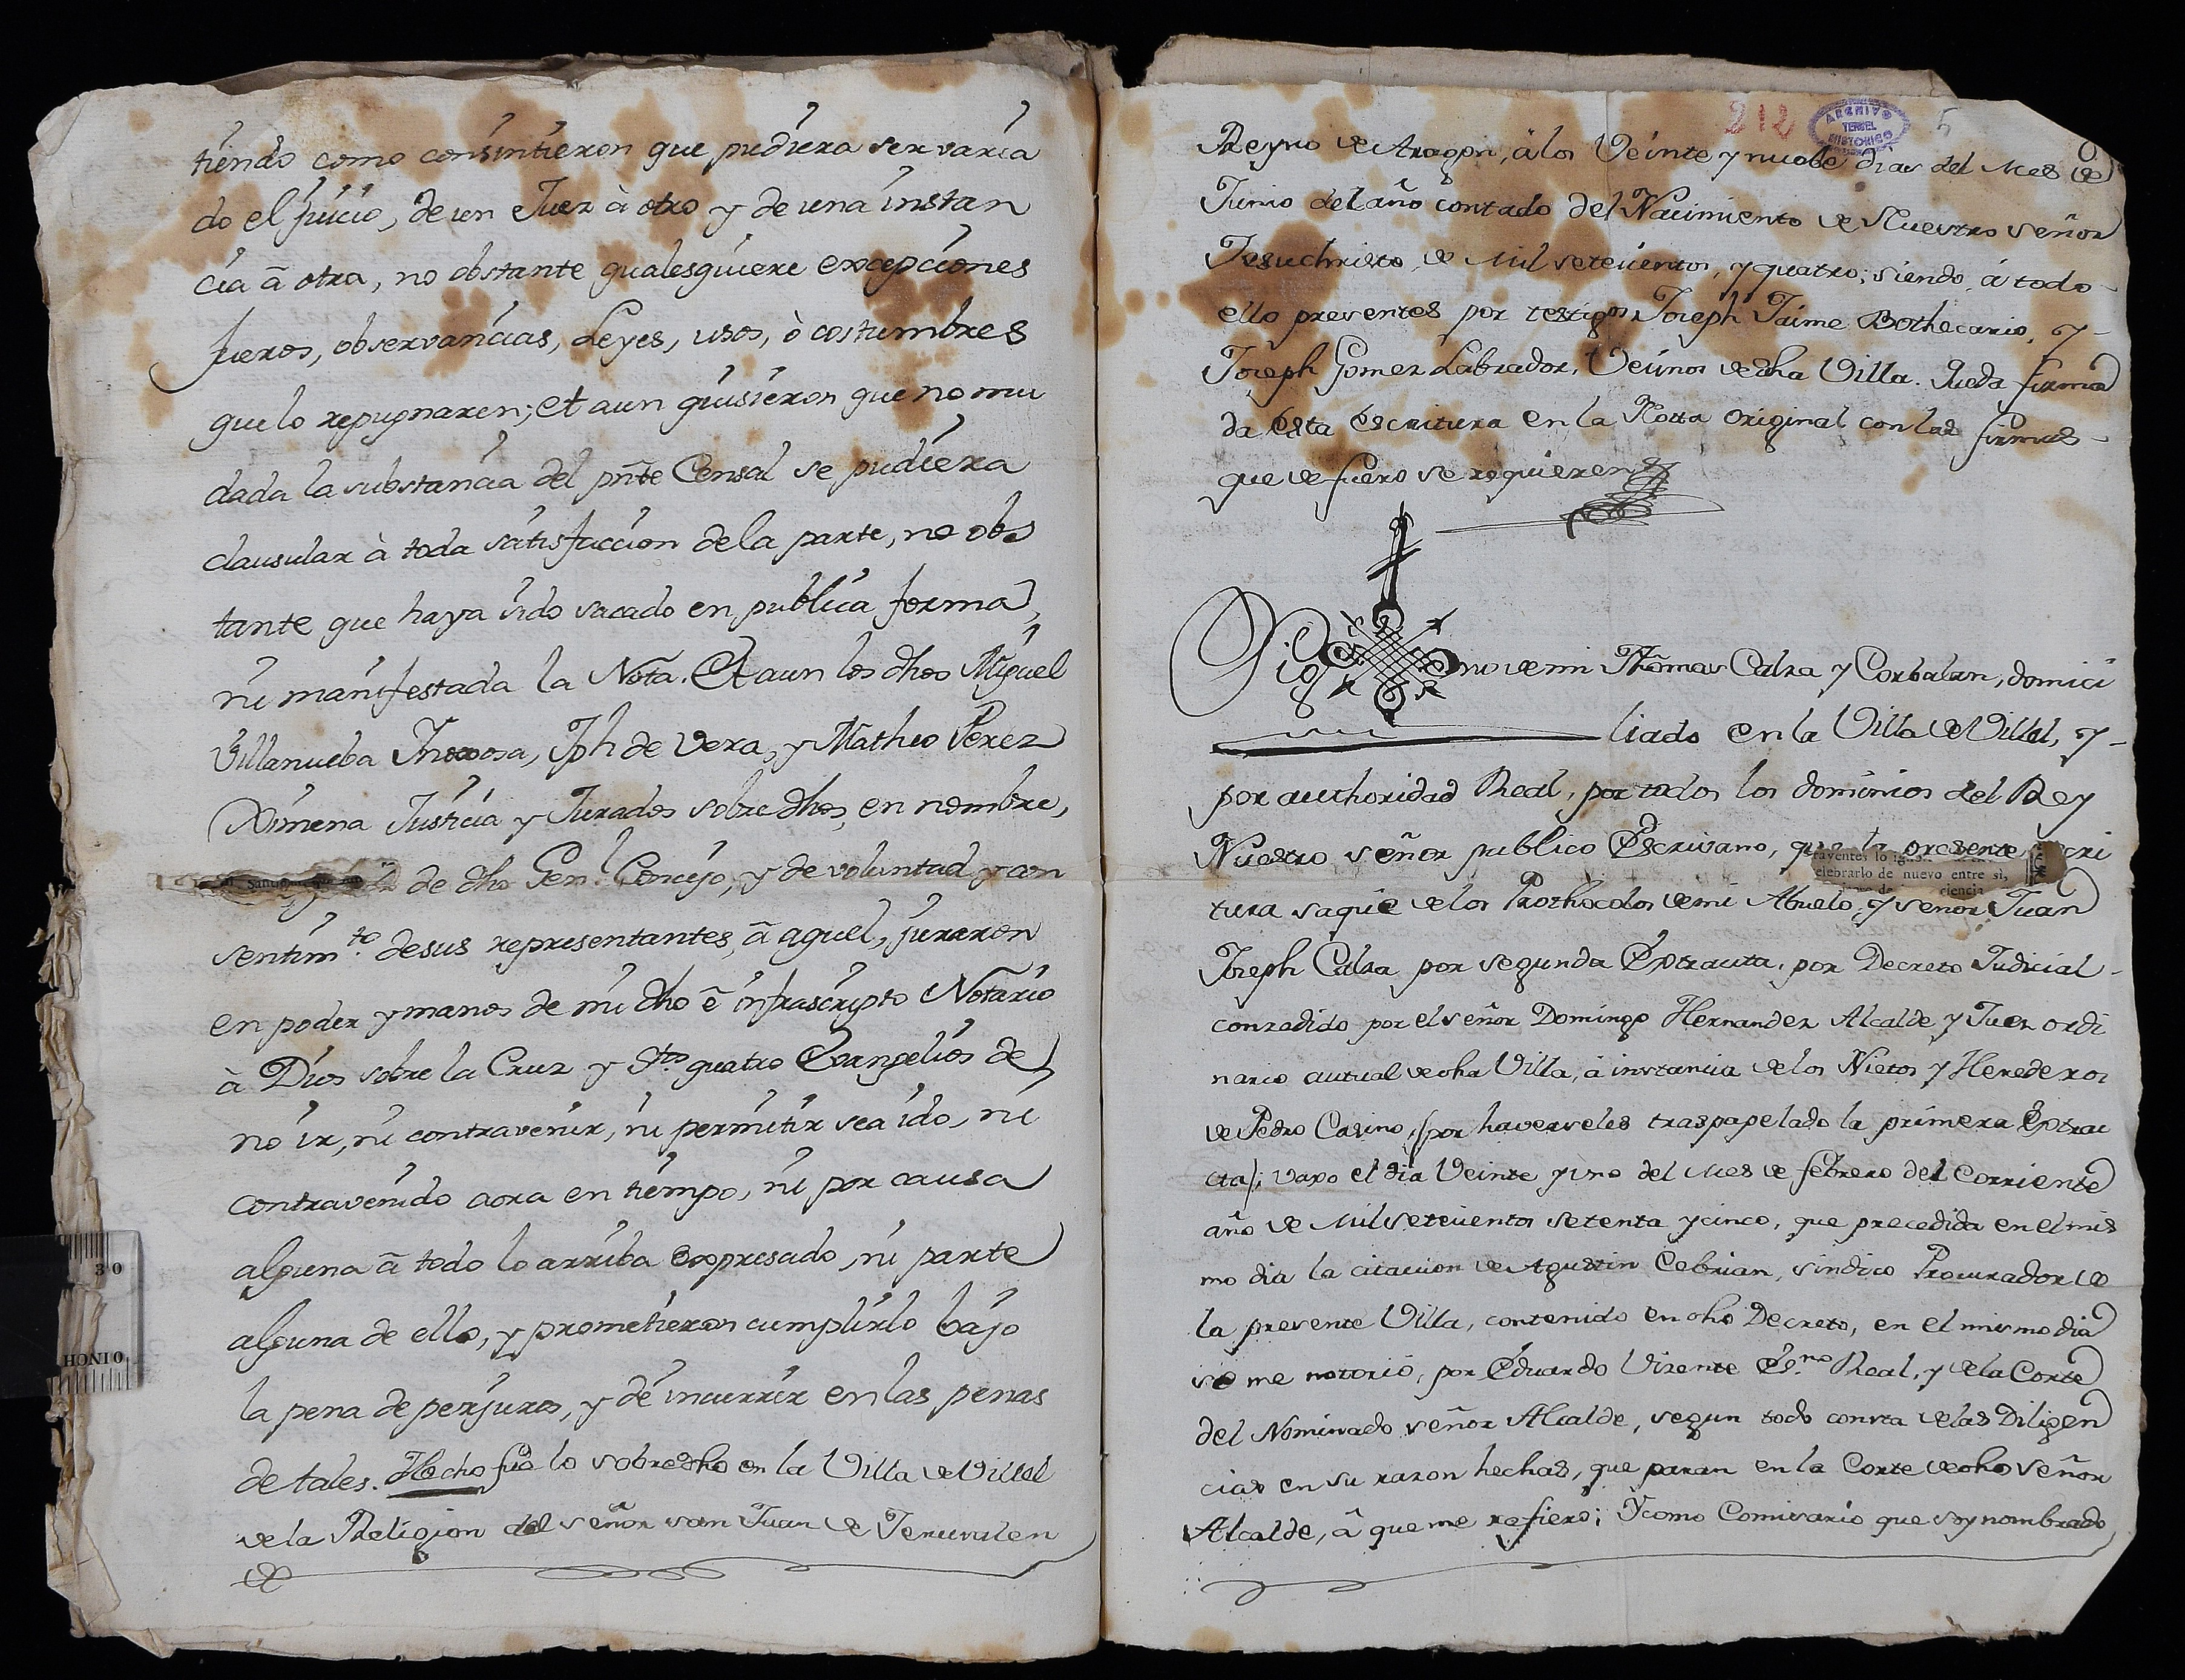 tiendo como consintieron que pudiera ser varia
do el juicio, de un Juez à otro y de una instan
cia ã otra, no obstante qualesquiere excepciones
fueros, observancias, Leyes, usos, ò costumbres
que lo repugnaren; et aun quisieron que no mu
dada la substancia del pñte Censal se pudiera
clausular à toda satisfaccion de la parte, no obs
tante que haya sido sacado en publica forma,
ni manifestada la Nota. Et aun los dhos Miguel
Villanueba Ynoxosa, Jph de Vera, y Matheo Perez
Ximena Justicia y Jurados sobre dhos, en nombre,
de dho Gen.l Concejo, y de voluntad y con
sentim.to de sus representantes, ã aquel, juraron
en poder y manos de mi dho ê infrascripto Notario
à Dios sobre la Cruz y S.tos quatro Evangelios de
no ir, ni contravenir, ni permitir sea ido, ni
contravenido aora en tiempo, ni por causa
alguna ã todo lo arriba expresado, ni parte
alguna de ello, y prometieron cumplirlo bajo
la pena de perjuros, y de incurrir en las penas
de tales. Hecho fue lo sobredho en la Villa de Villel
de la Religion del señor san Juan de Jerusalen
212
ARCHIVO
TERUEL
HISTORICO
5
Reyno de Aragon, à los Veinte y nuebe dias del Mes de
Junio del año contado del Nacimiento de Nuestro señor
Jesuchristo, de Mil setecientos, y quatro; siendo, á todo
ello presentes por testigos Joseph Jaime Bothecario, y
Joseph Gomez Labrador, Vecinos de dha Villa. Queda firma
da esta escritura en la Notta original con las firmas
que de fuero se requieren
Sig no de mi Thomas Calza y Corbalan, domici
liado en la Villa de Villel, y
por authoridad Real, por todos los dominios del Rey
Nuestro señor publico Escrivano, que la presente escri
rayentes lo
elebrarlo de nuevo entre sí,
ciencia
tura saquè de los Prothocolos de mi Abuelo, y señor Juan
Joseph Calza por segunda Extracta, por Decreto Judicial
conzedido por el señor Domingo Hernandez Alcalde y Juez ordi
nario actual de dha Villa, à instancia de los Nietos y Herederos
de Pedro Casino, (por haverseles traspapelado la primera Extrac
cta); vaxo el dia Veinte y uno del Mes de febrero del Corriente
año de Mil setecientos setenta y cinco, que precedida en el mis
mo dia la citaccion de Agustin Cebrian, sindico Procurador de
la presente Villa, contenido en dho Decreto, en el mismo dia
se me notorió, por Eduardo Vizente Es.no Real, y de la Corte
del Nominado señor Alcalde, segun todo consta de las Diligen
cias en su razon hechas, que paran en la Corte de dho señor
Alcalde, â que me refiero; Y como Comisario que soy nombrado
30
0 INCH